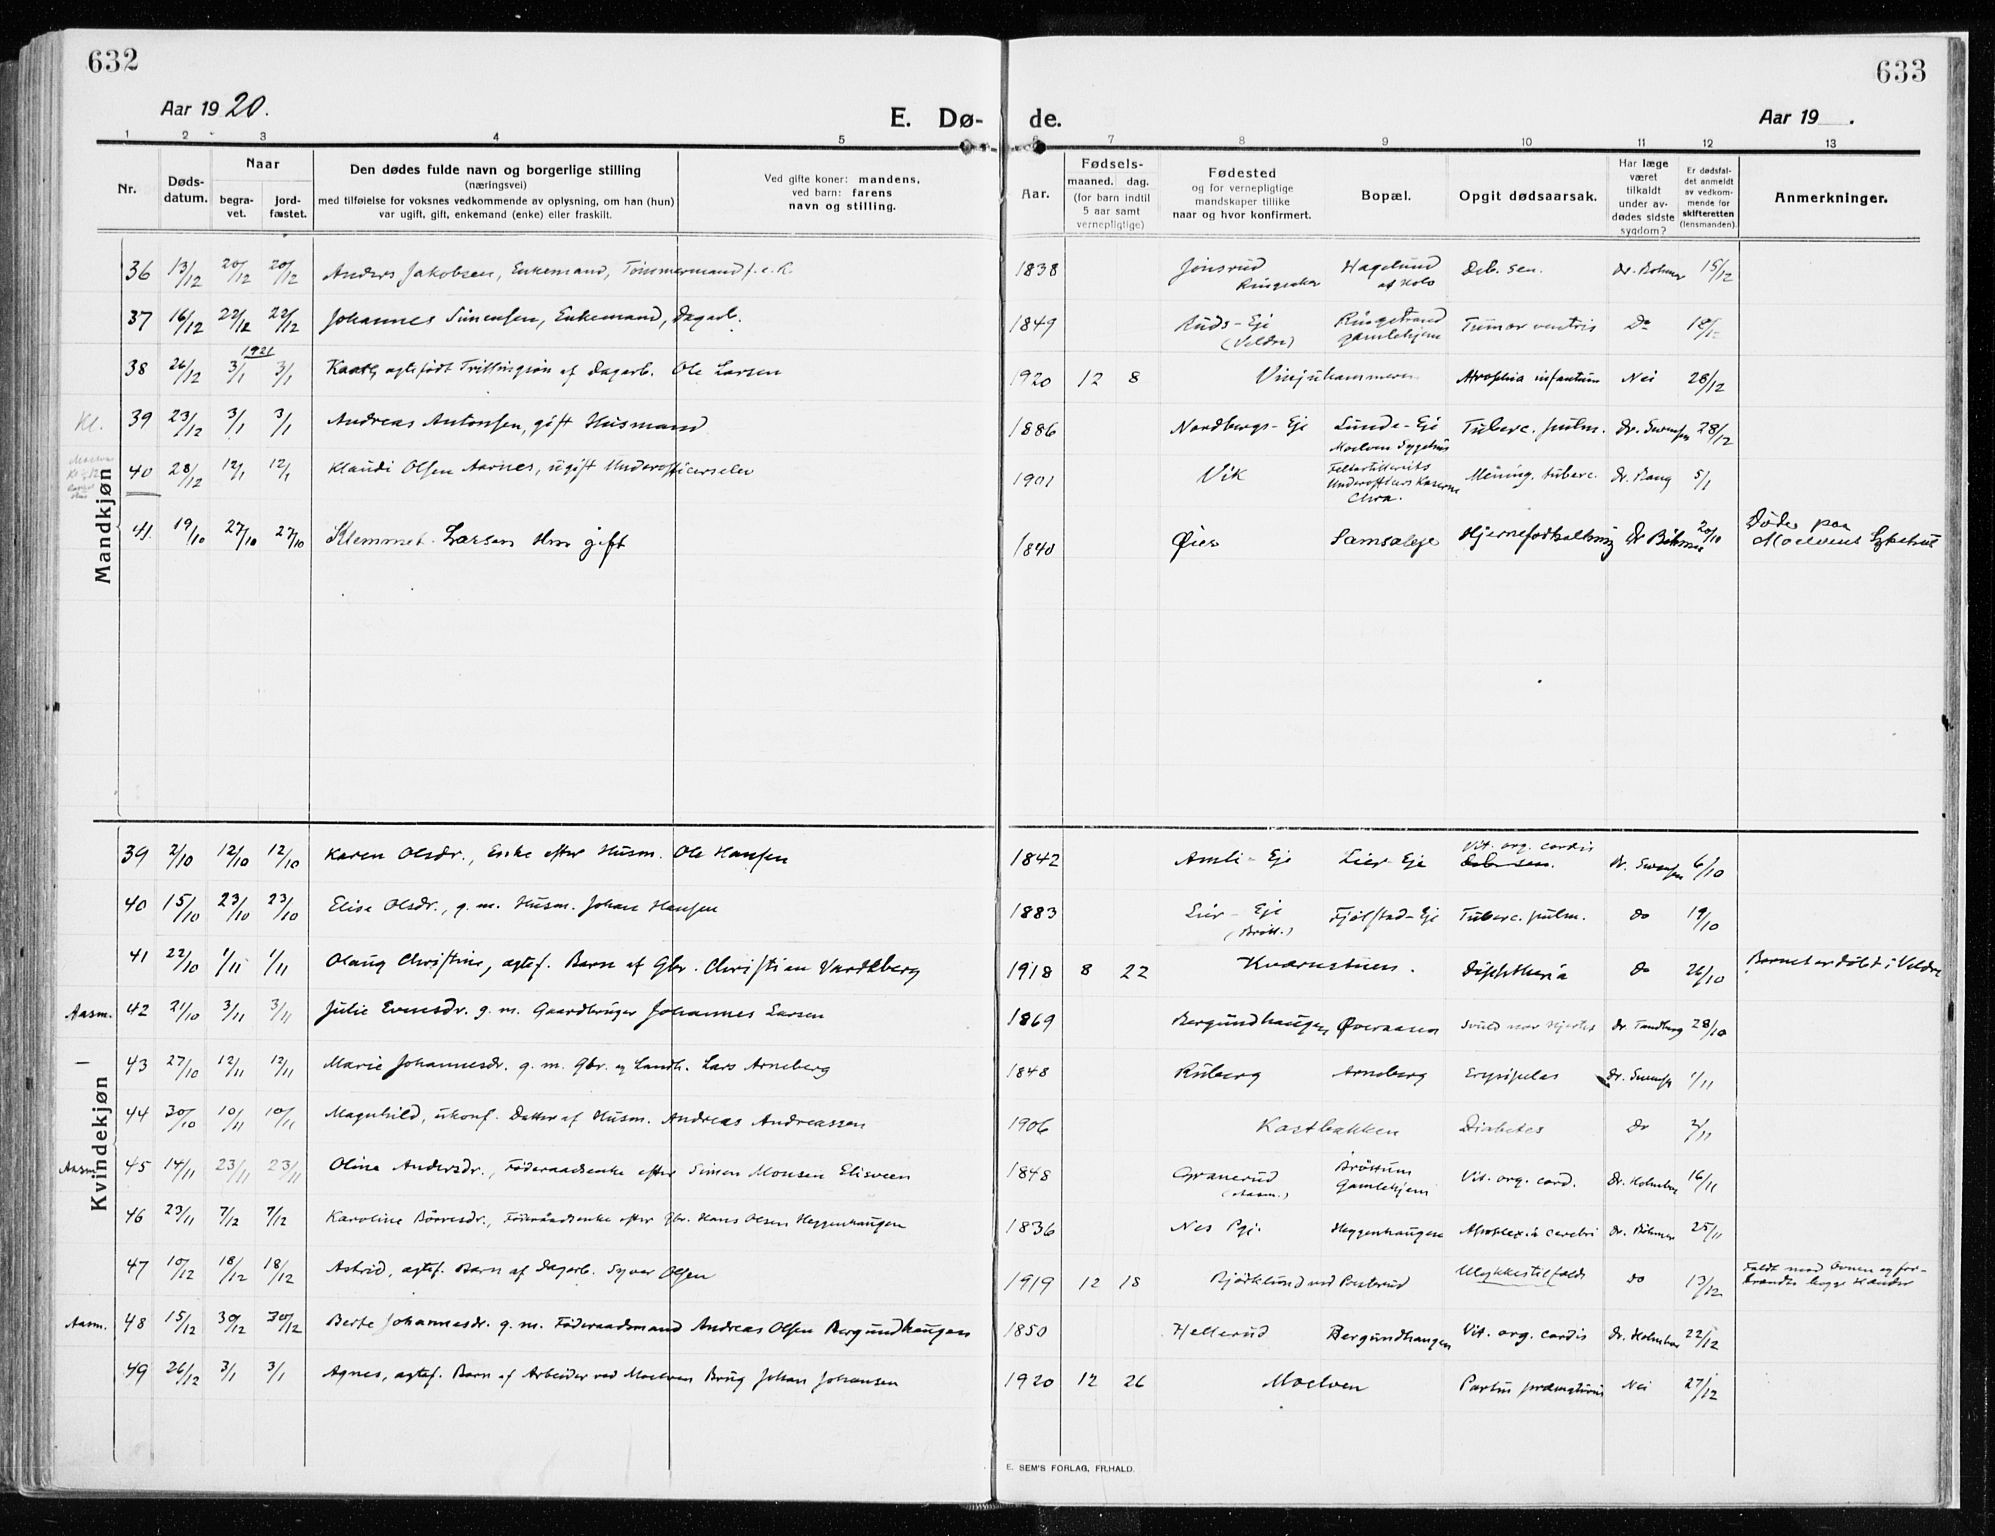 632
633
Aar 1920.
E. Dø-
de.
Aar 19 .
1 2 3 4 5 6 7 8 9 10 11 12 13
Nr.
Døds-
datum.
Naar
begra-
vet.
jord-
fæstet.
Den dødes fulde navn og borgerlige stilling
(næringsvei)
med tilføielse for voksnes vedkommende av oplysning, om han (hun)
var ugift, gift, enkemand (enke) eller fraskilt.
Ved gifte koner: mandens,
ved barn: farens
navn og stilling.
Aar.
Fødsels-
maaned. dag.
(for barn indtil
5 aar samt
vernepligtige)
Fødested
og for vernepligtige
mandskaper tillike
naar og hvor konfirmert.
Bopæl.
Opgit dødsaarsak.
Har læge
været
tilkaldt
under av-
dødes sidste
sygdom?
Er dødsfal-
det anmeldt
av vedkom-
mende for
skifteretten
(lensmanden).
Anmerkninger.
Mandkjøn
36 13/12 20/12 20/12 Anders Jakobsen, Enkemand, Tømmermand f. e. K. 1838 Jønsrud Ringsaker Hagelund af Hols Deb. sen. Dr. Bøhmer 15/12
37 16/12 22/12 22/12 Johannes Simensen, Enkemand, Dagarb. 1849 Ruds-Eje (Veldre) Ringstrand gamlehjem Tumor ventris Do 18/12
1921
38 26/12 3/1 3/1 ægtefødt Trillingsøn af Dagarb. Ole Larsen 1920 12 8 Vinjuhammeren Atrophia infantum Nei 28/12
Kl. 39 23/12 3/1 3/1 Andreas Antonsen, gift Husmand 1886 Nordbergs-Eje Lunde-Eje Moelven Sygehus Tuberc. pulm. Dr. Swensen 28/12
40 28/12 12/1 12/1 Klaudi Olsen Aarnes, ugift Underofficerselev 1901 Vik Feltartilleriets Underofficers Kaserne Chra. Mening. tuberc. Dr. Bang 5/1
41. 19/10 27/10 27/10 Klemmet Larsen Hm gift 1840 Øier Samsaleje Hjerneforkalkning Dr Bøhmer 20/10 Døde paa Moelvens Sykehus
Kvindekjøn
39 2/10 12/10 12/10 Karen Olsdr., Enke efter Husm. Ole Hansen 1842 Amli-Eje Lier-Eje Vit. org. cordis Deb. sen. Dr. Swensen 6/10
40 15/10 23/10 23/10 Elise Olsdr., g. m. Husm. Johan Hansen 1883 Lier-Eje (Brøtt.) Fjølstad-Eje Tuberc. pulm. do 19/10
41 22/10 1/11 1/11 Olaug Christine, ægtef. Barn af Gbr. Christian Vardeberg 1918 8 22 Kværnstuen. Diphtheria do 26/10 Barnet er døbt i Veldre
Aasm. 42 21/10 3/11 3/11 Julie Evensdr. g. m. Gaardbruger Johannes Larsen 1869 Bergundhaugen Øveraasen Svuld nær Hjertet Dr. Tandberg 28/10
— 43 27/10 12/11 12/11 Marie Johannesdr. g. m. Gbr. og Landh. Lars Arneberg 1848 Ruberg Arneberg Erysipelas Dr. Swensen 1/11
44 30/10 10/11 10/11 Magnhild, ukonf. Datter af Husm. Andreas Andreassen 1906 Kastbakken Diabetes Do 2/11
Aasm. 45 14/11 23/11 23/11 Oline Andersdr., Føderaadsenke efter Simen Monsen Elisveen 1848 Granerud (Aasm.) Brøttum Gamlehjem Vit. org. cord. Dr. Holmboe 16/11
46 23/11 7/12 7/12 Karoline Børresdr., Føderaadsenke efter Gbr. Hans Olsen Heggenhaugen 1836 Nes Pgj. Heggenhaugen Apoplexia cerebri Dr. Bøhmer 25/11
47 10/12 18/12 18/12 Astrid, ægtef. Barn af Dagarb. Syver Olsen 1919 12 18 Bjørklund ved Ulykkestilfælde do 13/12 Faldt mod Ovnen og for-
brændte begge Hænder
Aasm. 48 15/12 30/12 30/12 Berte Johannesdr. g. m. Føderaadsmand Andreas Olsen Bergundhaugen 1850 Hellerud Bergundhaugen Vit. org. cordis Dr. Holmboe 22/12
49 26/12 3/1 3/1 Agnes, ægtef. Barn af Arbeider ved Moelven Brug Johan Johansen 1920 12 26 Moelven Partus præmaturus Nei 27/12
E. SEM'S FORLAG, FR.HALD.